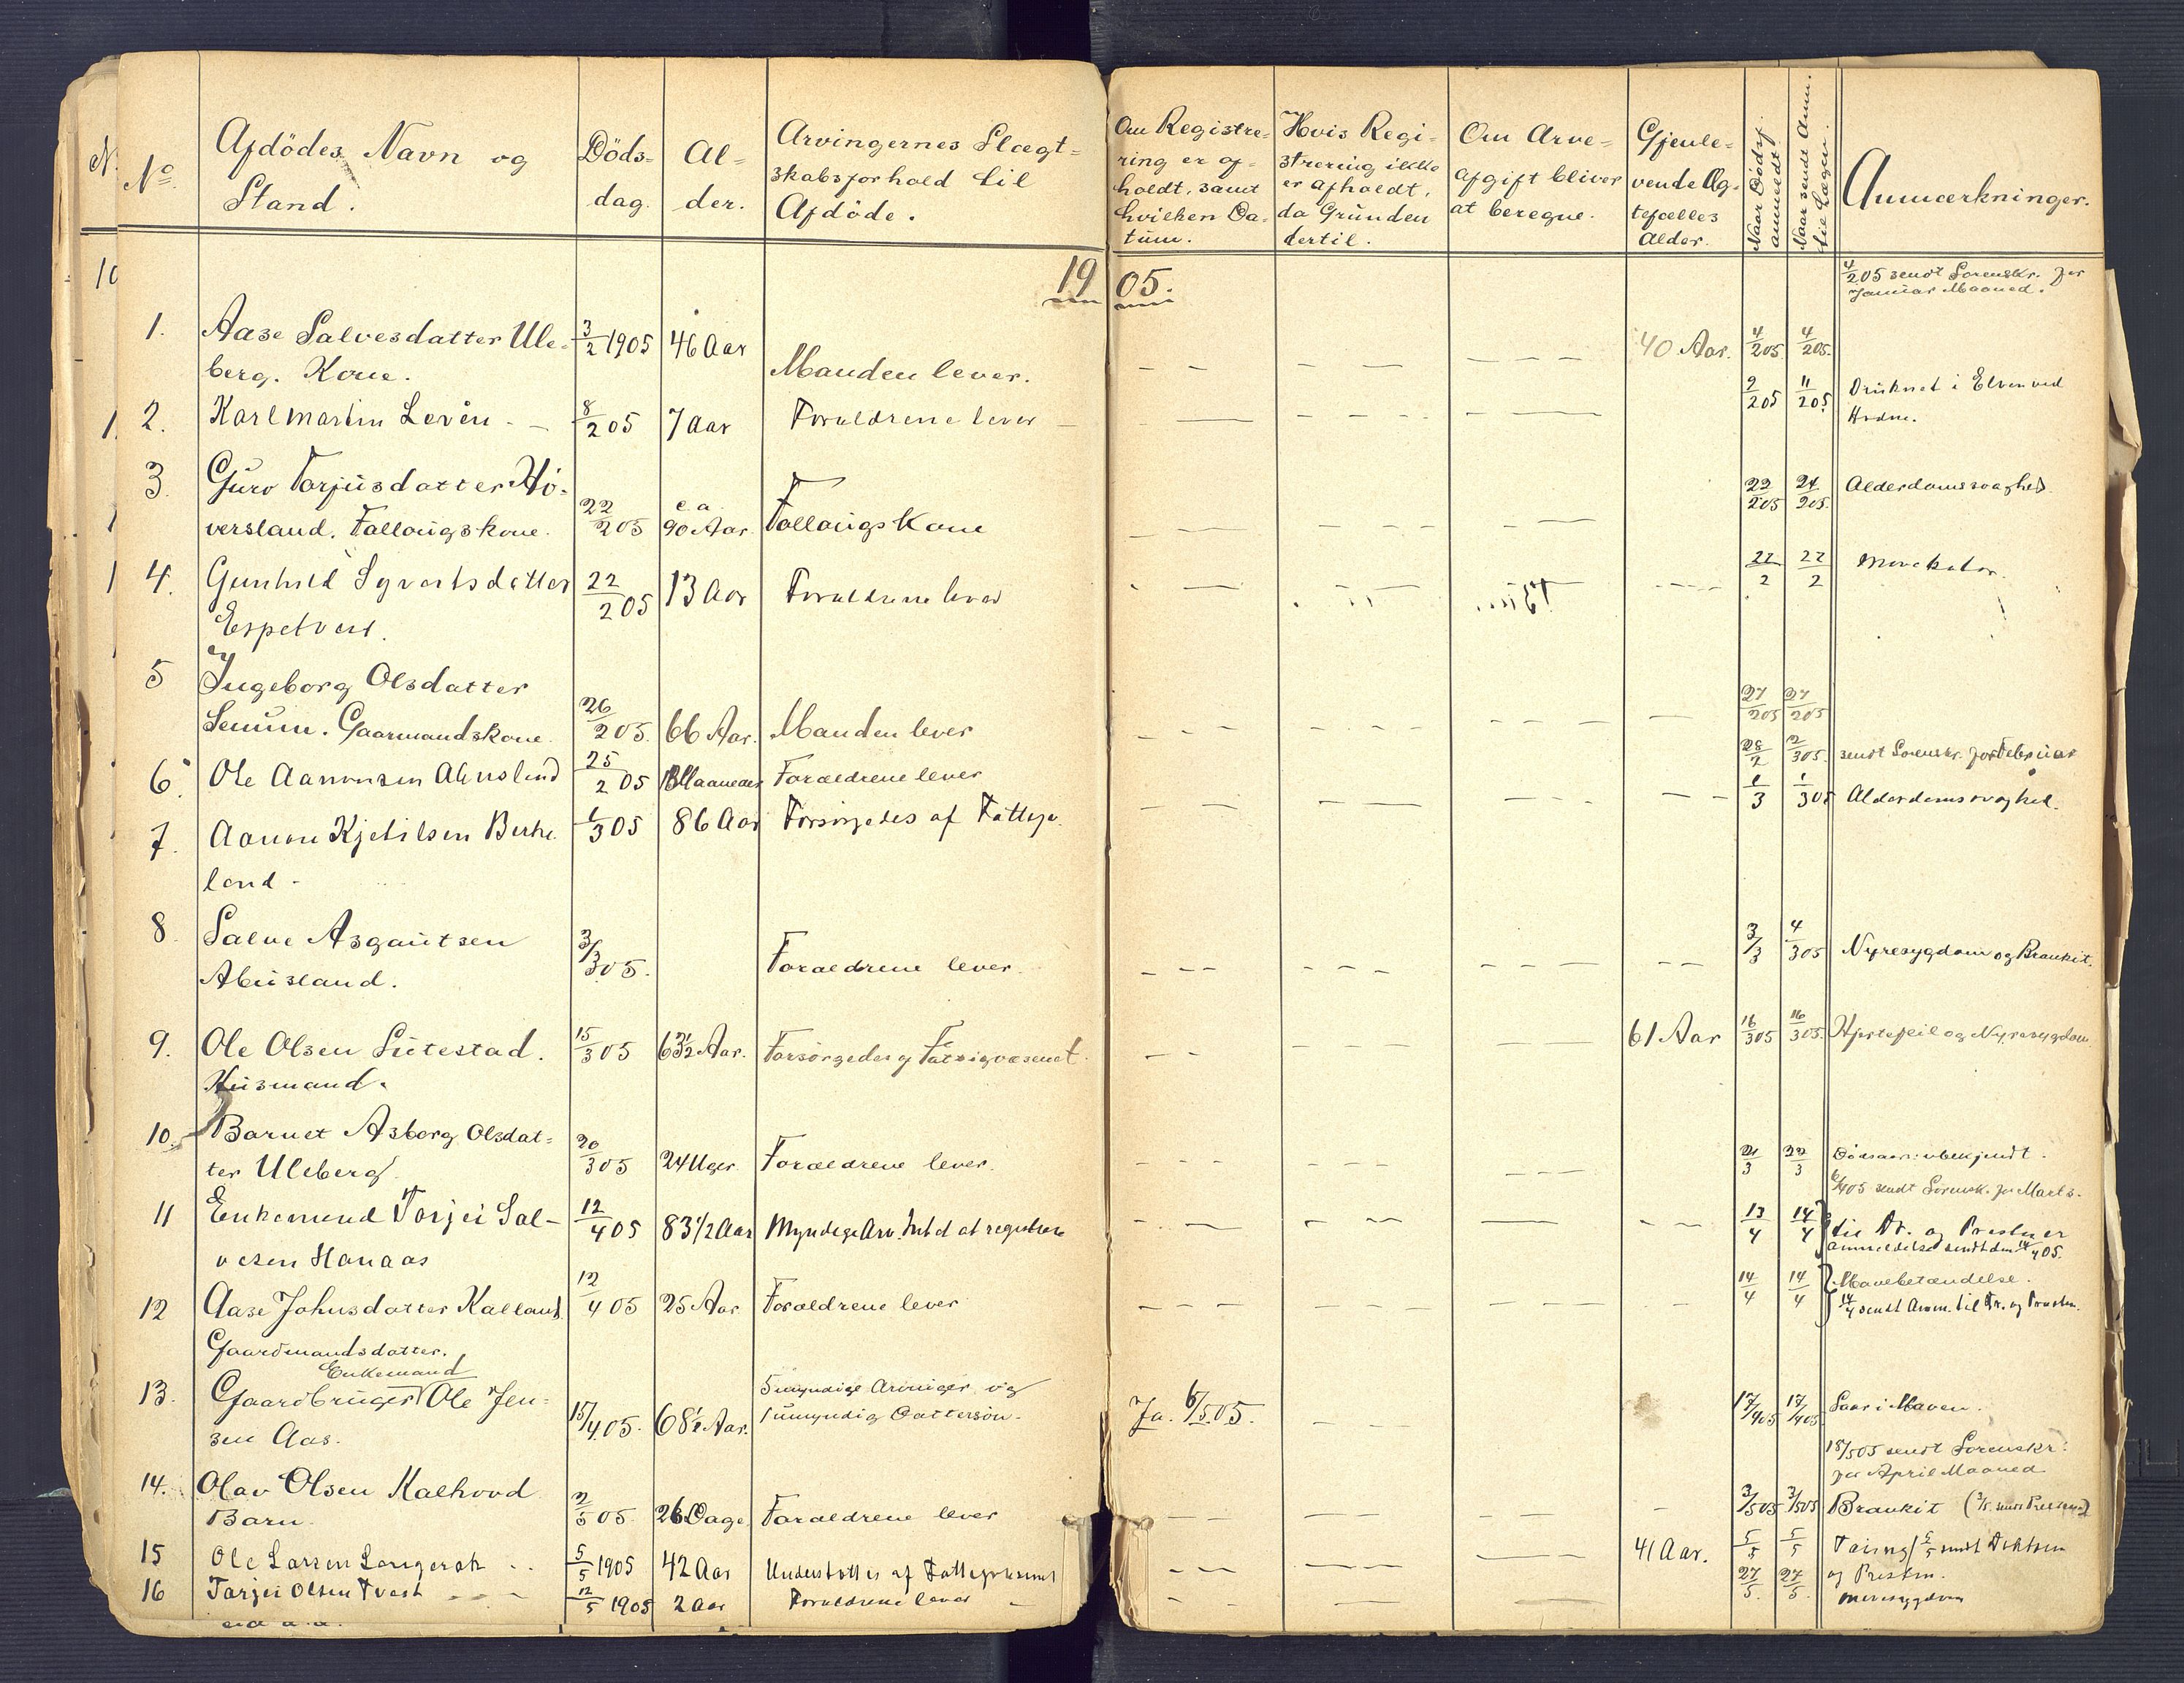 No. Afdödes Navn og Stand. Döds-dag. Al-der. Arvingernes Slægt-skabsforhold til Afdöde. Om Registre-ring er af-holdt, samt hvilken Da-tum. Hvis Regi-strering ikke er afholdt, da Grunden dertil. Om Arve-afgift bliver at beregne. Gjenle-vende Æg-tefælles Alder. Naar Dödsf. anmeldt. Naar sendt Anm. til Lagm. Anmærkninger.
1905.
4/2 05 sendt Sorenskr. for
Januar Maaned.
1. Aase Salvesdatter Ule- 3/2 1905 46 Aar 40 Aar. 4/2 05 4/2 05.
berg. Kone. Manden lever.
2. Karl Martin Levên 8/2 05 7 Aar Forældrene lever 9/2 05 11/2 05 Druknet i Elven ved
3. Guro Torjusdatter Hö- 22/2 05 24/2 05. Alderdomssvaghed
versland. Fallougskone. 22/2 05 ca. 90 Aar. Fallougskone
4. Gunhild Syvertsdatter 22/2 05 13 Aar Forældrene lever 22/2 22/2
Espetveit.
5 Ingeborg Olsdatter
Senum. Gaarmandskone. 26/2 05. 66 Aar. Manden lever 27/2 05 27/2 05
6. Ole Aanonsen Abusland 25/2 05 Maaneder Forældrene lever 28/2 2/3 05. sendt Sorenskr. for Februar
7. Aanon Kjetilsen Birke- 1/3 05 86 Aar Forsörgedes af Fattigv. 1/3 1/3 05 Alderdomssvaghed.
land.
8. Salve Asgautsen 3/3 05. Forældrene lever. 3/3 4/3 05 Nyresygdom og Bronkit.
Abusland.
9. Ole Olsen Lutestad. 15/3 05 63 1/2 Aar. Forsörgedes af Fattigvæsenet. 61 Aar 16/3 05 16/3 05. Hjertefeil og Nyresygdom.
Husmand.
10. Barnet Asborg Olsdat-
ter Uleberg 20/3 05 24 Uger. Forældrene lever. 21/3 22/3 Dödsaars: ubekjendt.
6/4 05 sendt Sorensk. for Marts.
11 Enkemand Torjei Sal- 12/4 05 83 1/2 Aar Myndige Arv. Intet at registrere 13/4 14/4 til Dr. og Presten er
vesen Hanaas anmeldelse sendt den 14/4 05.
12 Aase Johnsdatter Kalland 12/4 05 25 Aar. Forældrene lever 14/4 14/4 Mavebetændelse.
14/4 sendt Anm. til Dr. og Presten.
Gaardmandsdatter.
Enkemand
13. Gaardbruger Ole Jen- 15/4 05. 68 1/2 Aar. 5 myndige Arvinger og Ja. 6/5 05. 17/4 05 17/4 05 Saar i Maven.
sen Aas. 1 umyndig Dattersön.
18/5 05 sendt Sorenskr.
for April Maaned
14. Olav Olsen Kalhovd 2/5 05. 26 Dage Forældrene lever 3/5 05 3/5 05 Bronkit (3/5 sendt Presten)
Barn.
15 Ole Larsen Langerak 5/5 1905 42 Aar Understöttes af Fattigvæsenet 41 Aar. 5/5 5/5 Tæring 5/5 sendt Doktoren
og Presten.
16 Tarjei Olsen Tveit 12/5 1905 2 Aar Forældrene lever 27/5. 27/5.